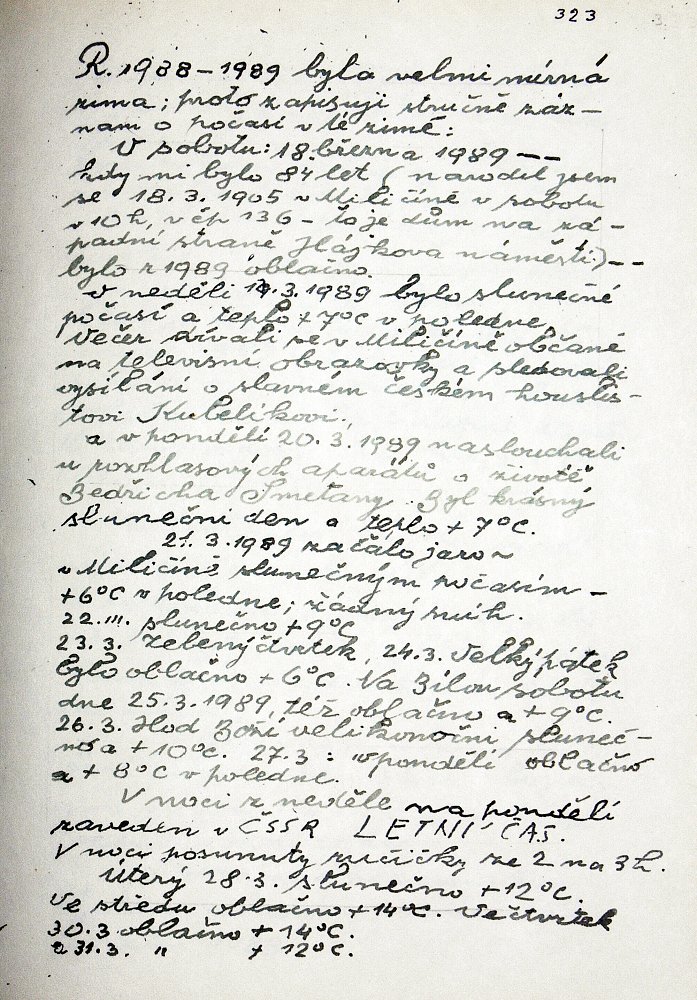 323
R. 1988 – 1989 byla velmi mírná
zima; proto zapisuji stručně záz-
nam o počasí v té zimě:
V sobotu: 18. března 1989 ––
kdy mi bylo 84 let (narodil jsem
se 18. 3. 1905 v Miličíně v sobotu
v 10 h, v čp 136 – to je dům na zá-
padní straně Hajkova náměstí.) ––
bylo r 1989 oblačno.
v neděli 19. 3. 1989 bylo slunečné
počasí a teplo + 7°C v poledne,
Večer dívali se v Miličíně občané
na televisní obrazovky a sledovali
vysílání o slavném českém houslis-
tovi Kubelíkovi,
a v pondělí 20. 3. 1989 naslouchali
u rozhlasových aparátů o životě
Bedřicha Smetany. Byl krásný
sluneční den a teplo + 7°C.
21. 3. 1989 začalo jaro ~
v Miličíně slunečným počasím –
+6°C v poledne; žádný sníh.
22. III. slunečno +9°C
23. 3. Zelený čtvrtek, 24.3. Velký pátek
bylo oblačno + 6°C. Na Bílou sobotu
dne 25. 3. 1989, též oblačno a + 9°C.
26. 3. Hod Boží velikonoční sluneč-
no a + 10°C. 27. 3: v pondělí oblačno
a + 8°C v poledne.
V noci z neděle na pondělí
zaveden v ČSSR LETNÍ ČAS.
V noci posunuty ručičky ze 2 na 3 h.
Úterý 28. 3. slunečno +12°C.
Ve středu oblačno +14°C. Ve čtvrtek
30.3 oblačno + 14°C.
a 31.3. " + 12°C.